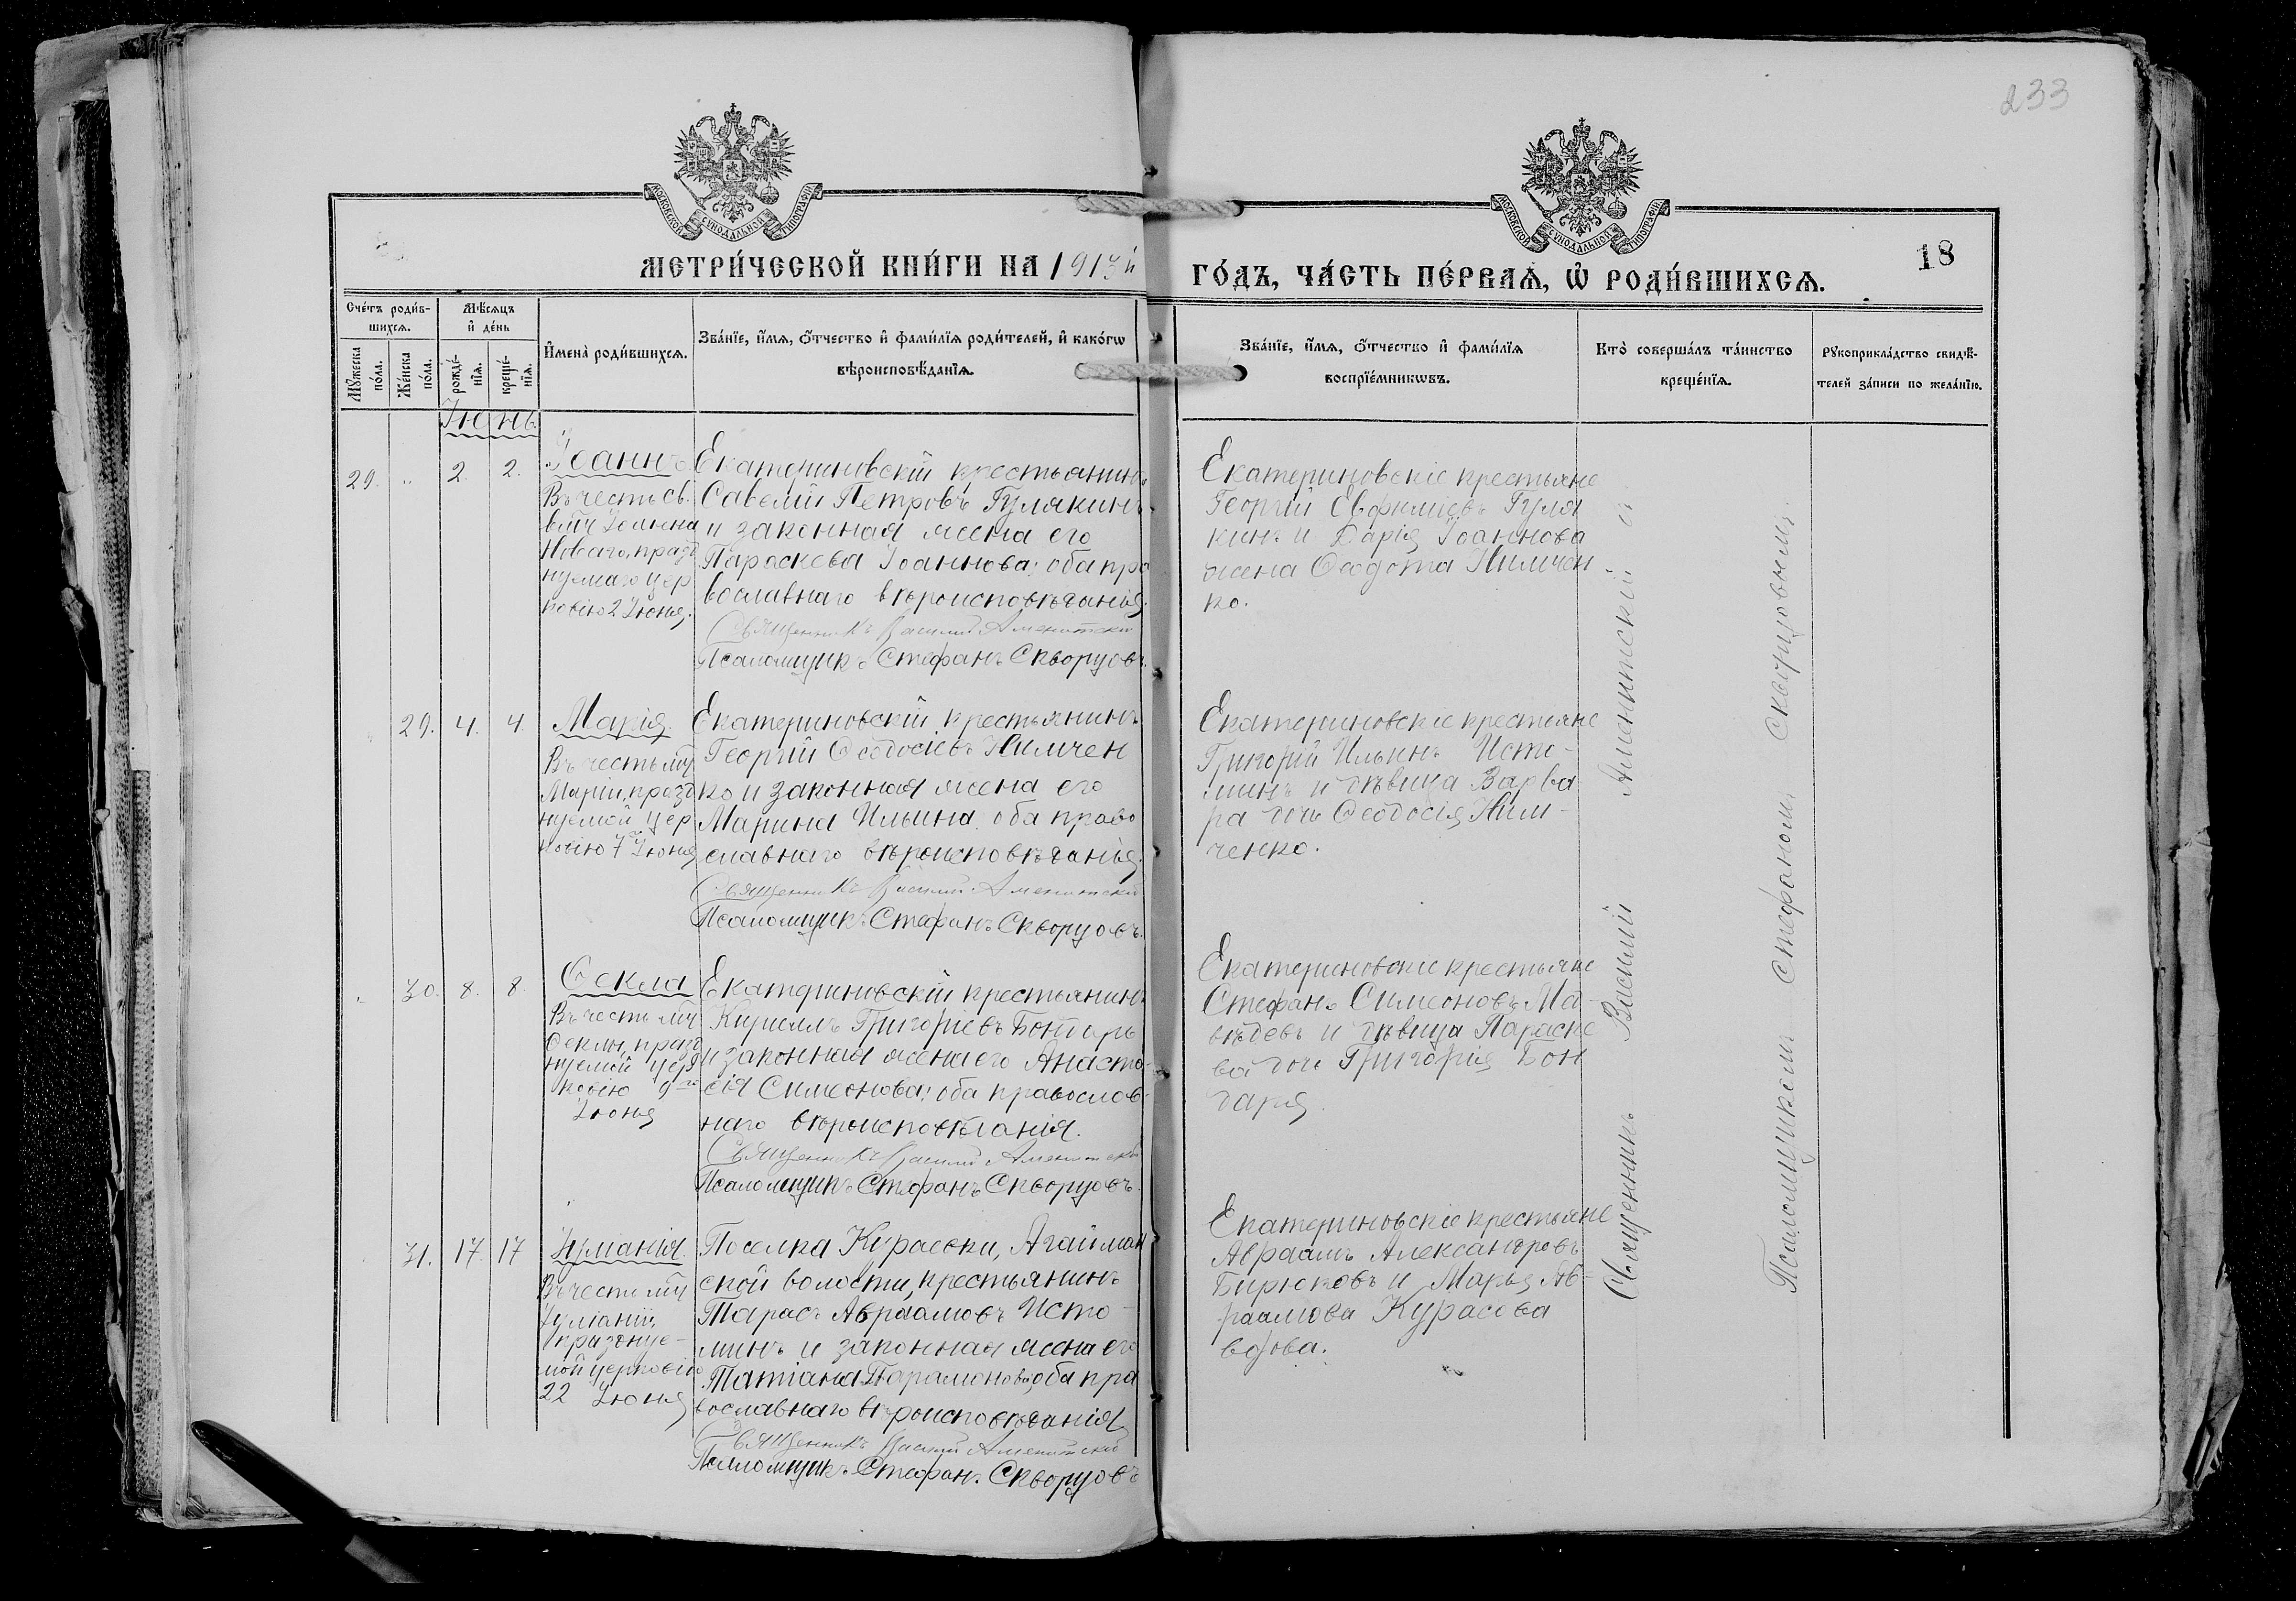 233
МОСКОВСКОЙ СѴНОДАЛЬНОЙ ТИПОГРАФІИ
МОСКОВСКОЙ СѴНОДАЛЬНОЙ ТИПОГРАФІИ
МЕТРИ́ЧЕСКОЙ КНИ́ГИ НА 1913й
ГО́ДЪ, ЧА́СТЬ ПЕ́РВАѦ, Ѡ҆ РОДИ́ВШИХСѦ.
18
Сче́тъ роди́в-
шихсѧ.
Мꙋ́жеска
по́ла.
Же́нска
по́ла.
Мѣ́сѧцъ
и҆ де́нь
рожде́-
нїѧ.
креще́-
нїѧ.
И҆мена̀ роди́вшихсѧ.
Зва́нїе, и҆́мѧ, ѻ҆́тчество и҆ фами́лїѧ роди́телей, и҆ како́гѡ
вѣроисповѣ́данїѧ.
Зва́нїе, и҆́мѧ, ѻ҆́тчество и҆ фами́лїѧ
воспрїе́мникѡвъ.
Кто̀ соверша́лъ та́инство
креще́нїѧ.
Рꙋкоприкла́дство свидѣ́-
телей за́писи по жела́нїю.
Іюнь.
29. „ 2. 2.
Іоаннъ
Въ честь св.
влмч Іоанна
Новаго, празд
нуемаго цер
ковію 2 Іюня.
Екатериновскій крестьянинъ
Савелій Петровъ Гулякинъ
и законная жена его
Параскева Іоаннова; оба пра
вославнаго вѣроисповѣданія.
Священникъ Василій Аменитскій
Псаломщикъ Стефанъ Скворцовъ.
Екатериновскіе крестьяне
Георгій Евфиміевъ Гуля
кинъ и Дарія Іоаннова
жена Ѳеодота Нимчен-
ко.
29. 4. 4.
Марія.
Въ честь мц
Маріи, празд
нуемой цер
ковію 7го Іюня
Екатериновскій крестьянинъ
Георгій Ѳеодосіевъ Нимчен
ко и законная жена его
Марина Ильина оба право
славнаго вѣроисповѣданія.
Священникъ Василій Аменитскій
Псаломщикъ Стефанъ Скворцовъ.
Екатериновскіе крестьяне
Григорій Ильинъ Исто-
минъ и дѣвица Варва-
ра дочь Ѳеодосія Ним-
ченко.
„ 30. 8. 8.
Ѳекла
Въ честь мц
Ѳеклы, празд
нуемой цер
ковію 9го
Іюня
Екатериновскій крестьянинъ
Кириллъ Григоріевъ Бондарь
и законная жена его Анаста-
сія Симеонова; оба православ-
наго вѣроисповѣданія.
Священникъ Василій Аменитскій
Псаломщикъ Стефанъ Скворцовъ.
Екатериновскіе крестьяне
Стефанъ Симеоновъ
и дѣвица Параске
ва дочь Григорія Бон
даря.
31. 17. 17
Іуліанія
Въ честь мц
Іуліаніи,
празднуе-
мой церковію
22 Іюня
Поселка Курасвки, Агайман
ской волости, крестьянинъ
Тарасъ Авраамовъ Исто-
минъ и законная жена его
Татіана Парамонова; оба пра
вославнаго вѣроисповѣданія
Священникъ Василій Аменитскій
Псаломщикъ Стефанъ Скворцовъ
Екатериновскіе крестьяне
Авраамъ Александровъ
Бирюковъ и Марья Ав-
раамова Курасова
вдова.
Священникъ Василій Аменитскій съ
Псаломщикомъ Стефаномъ Скворцовымъ.